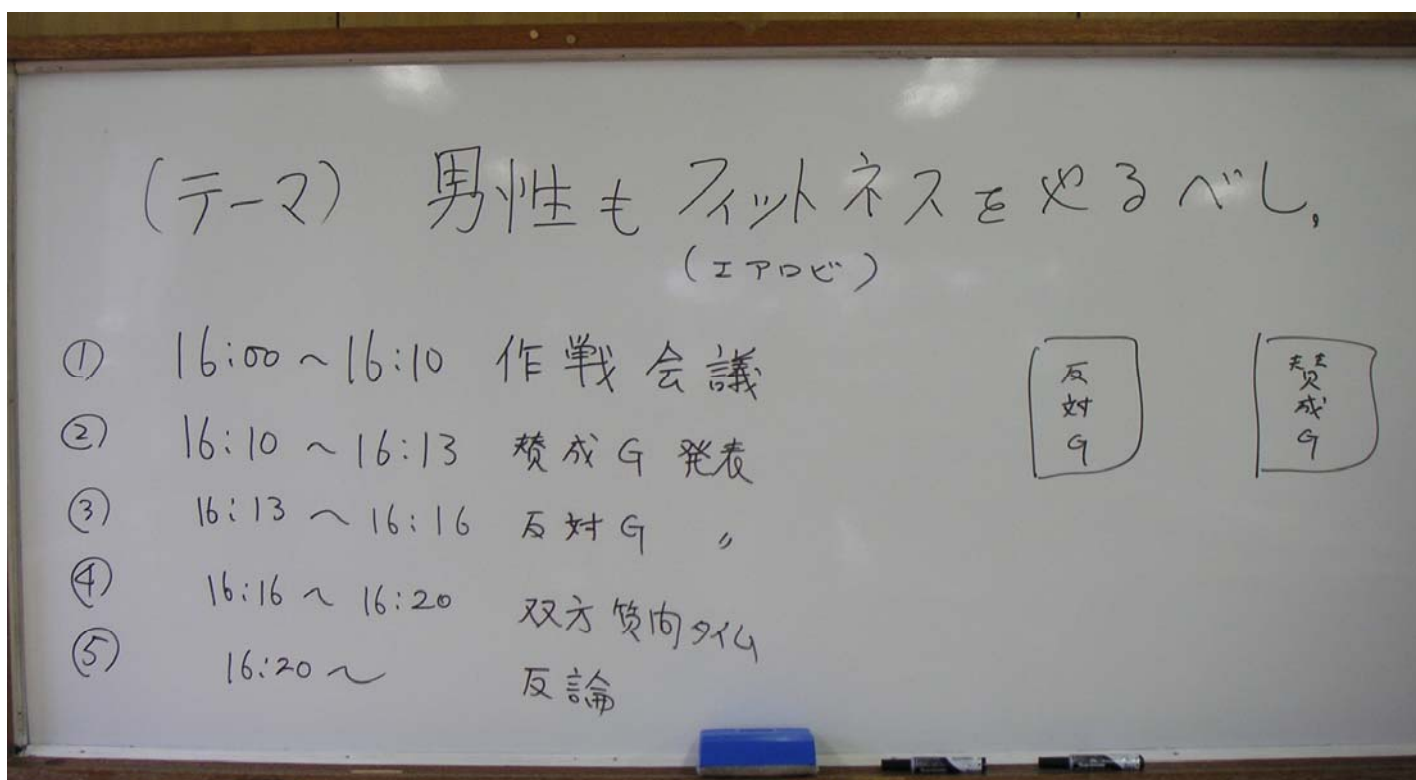 (テーマ) 男性もフィットネスをやるべし,
(エアロビ)
① 16:00~16:10 作戦会議
② 16:10~16:13 賛成G 発表
③ 16:13~16:16 反対G 〃
④ 16:16~16:20 双方質問タイム
⑤ 16:20~ 反論
反対G
賛成G